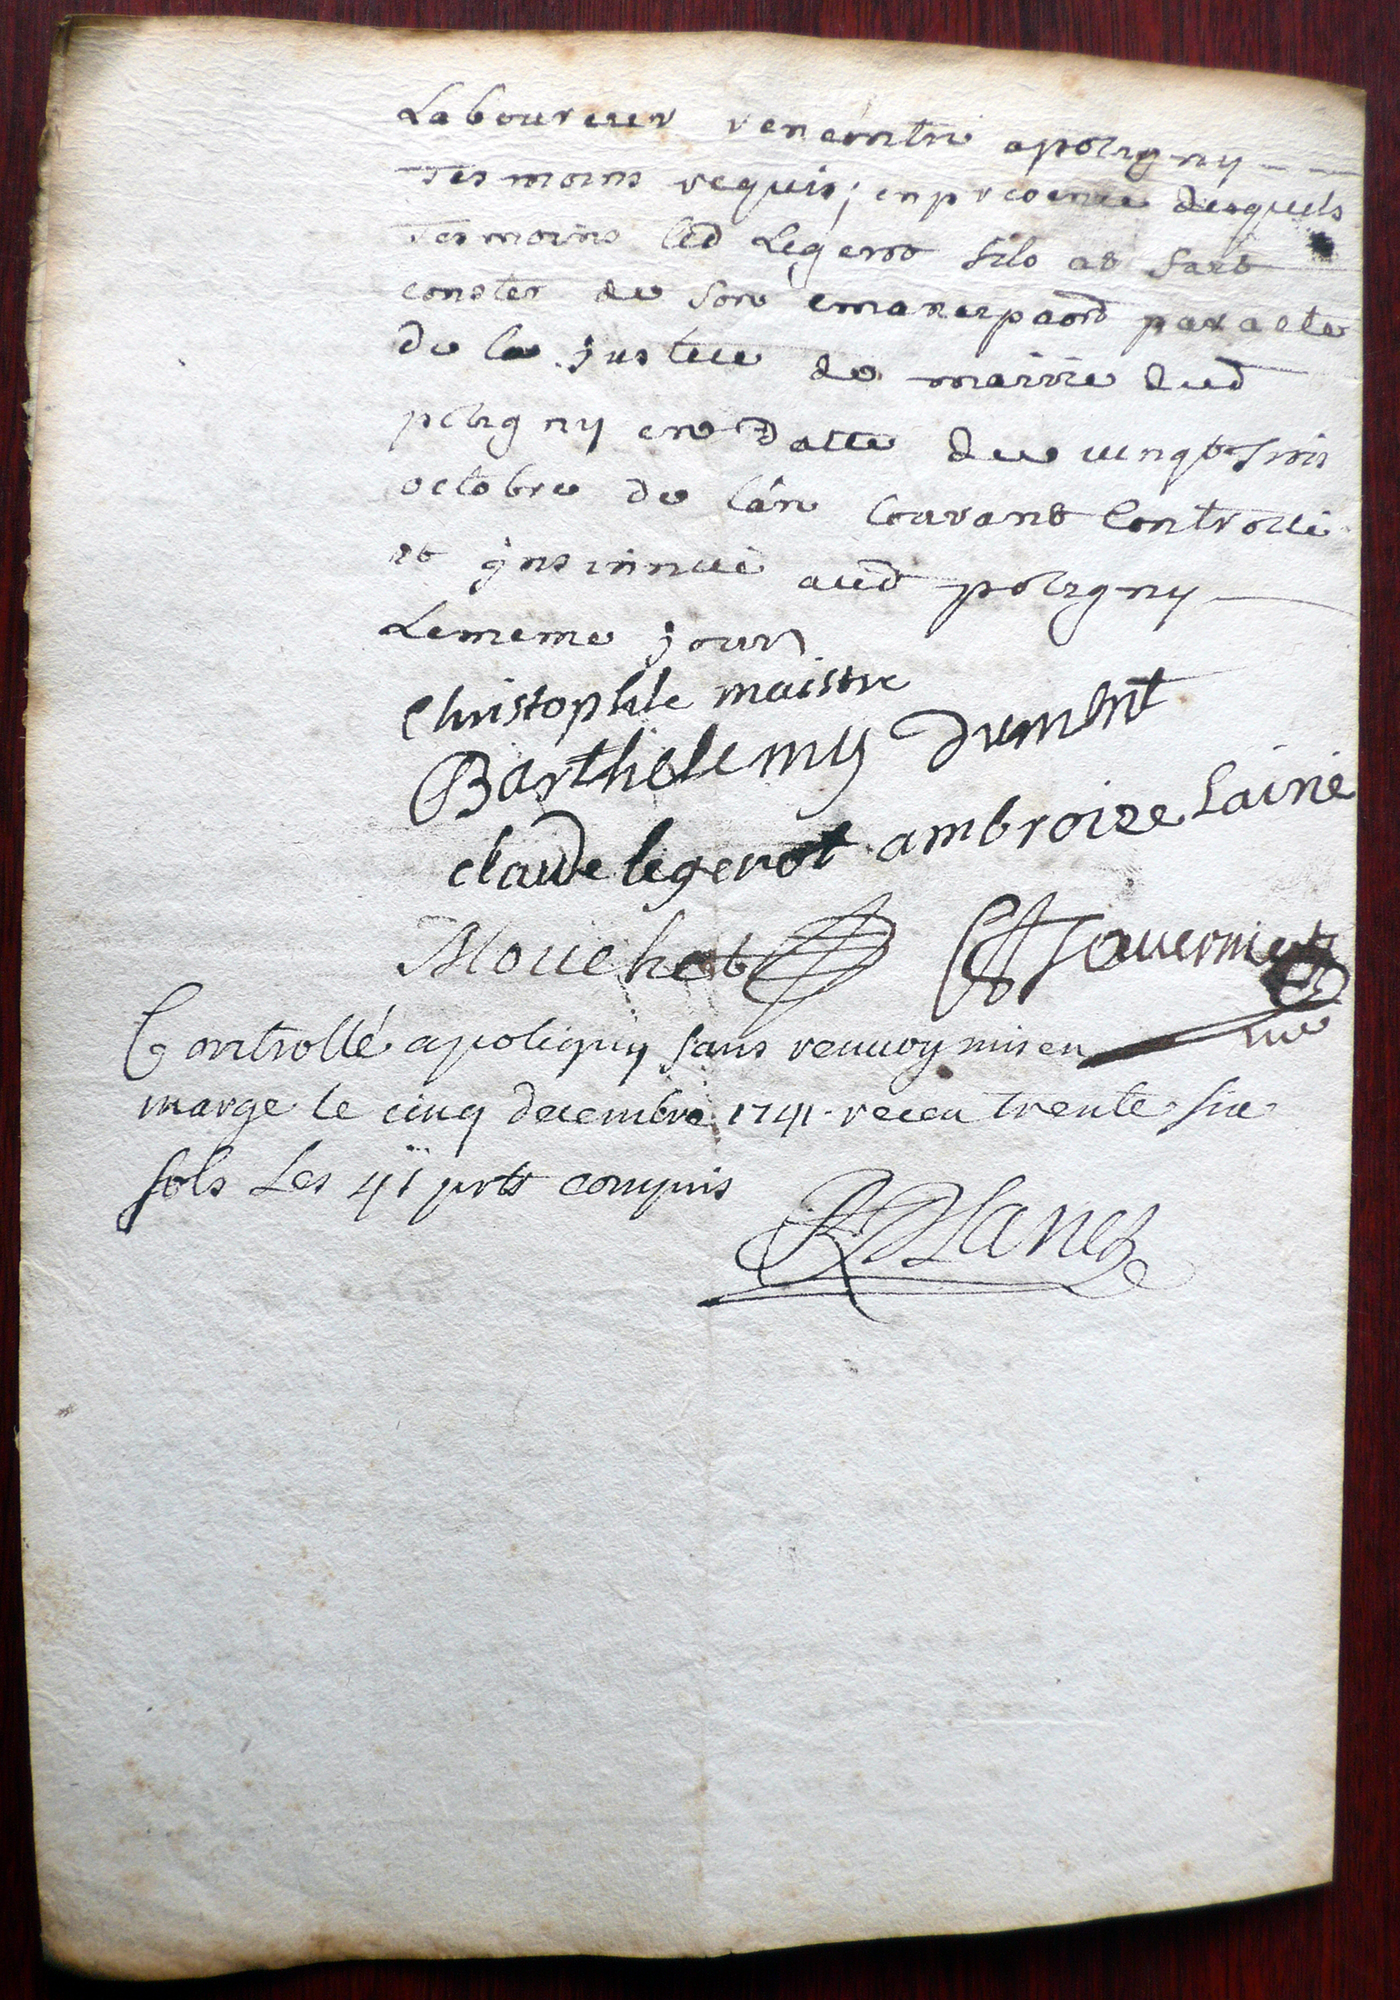 Laboureur rencontré apoligny
Tesmoins requis; en presence desquels
Tesmoins led Legerot filo at fait
conster de son emancipaon par acte
de la justice de mairie dud
poligny en datte du vingt trois
octobre de lan Courant Controllé
et jnsinnué aud poligny
Lememe jour
Christophle maistre
Barthelemy Dumont
claude legerot ambroize Lainé
Mouchet
Controllé apoligny sans renuoy mis en
marge le cinq decembre 1741 receu trente six
sols Les 4 s prts compris